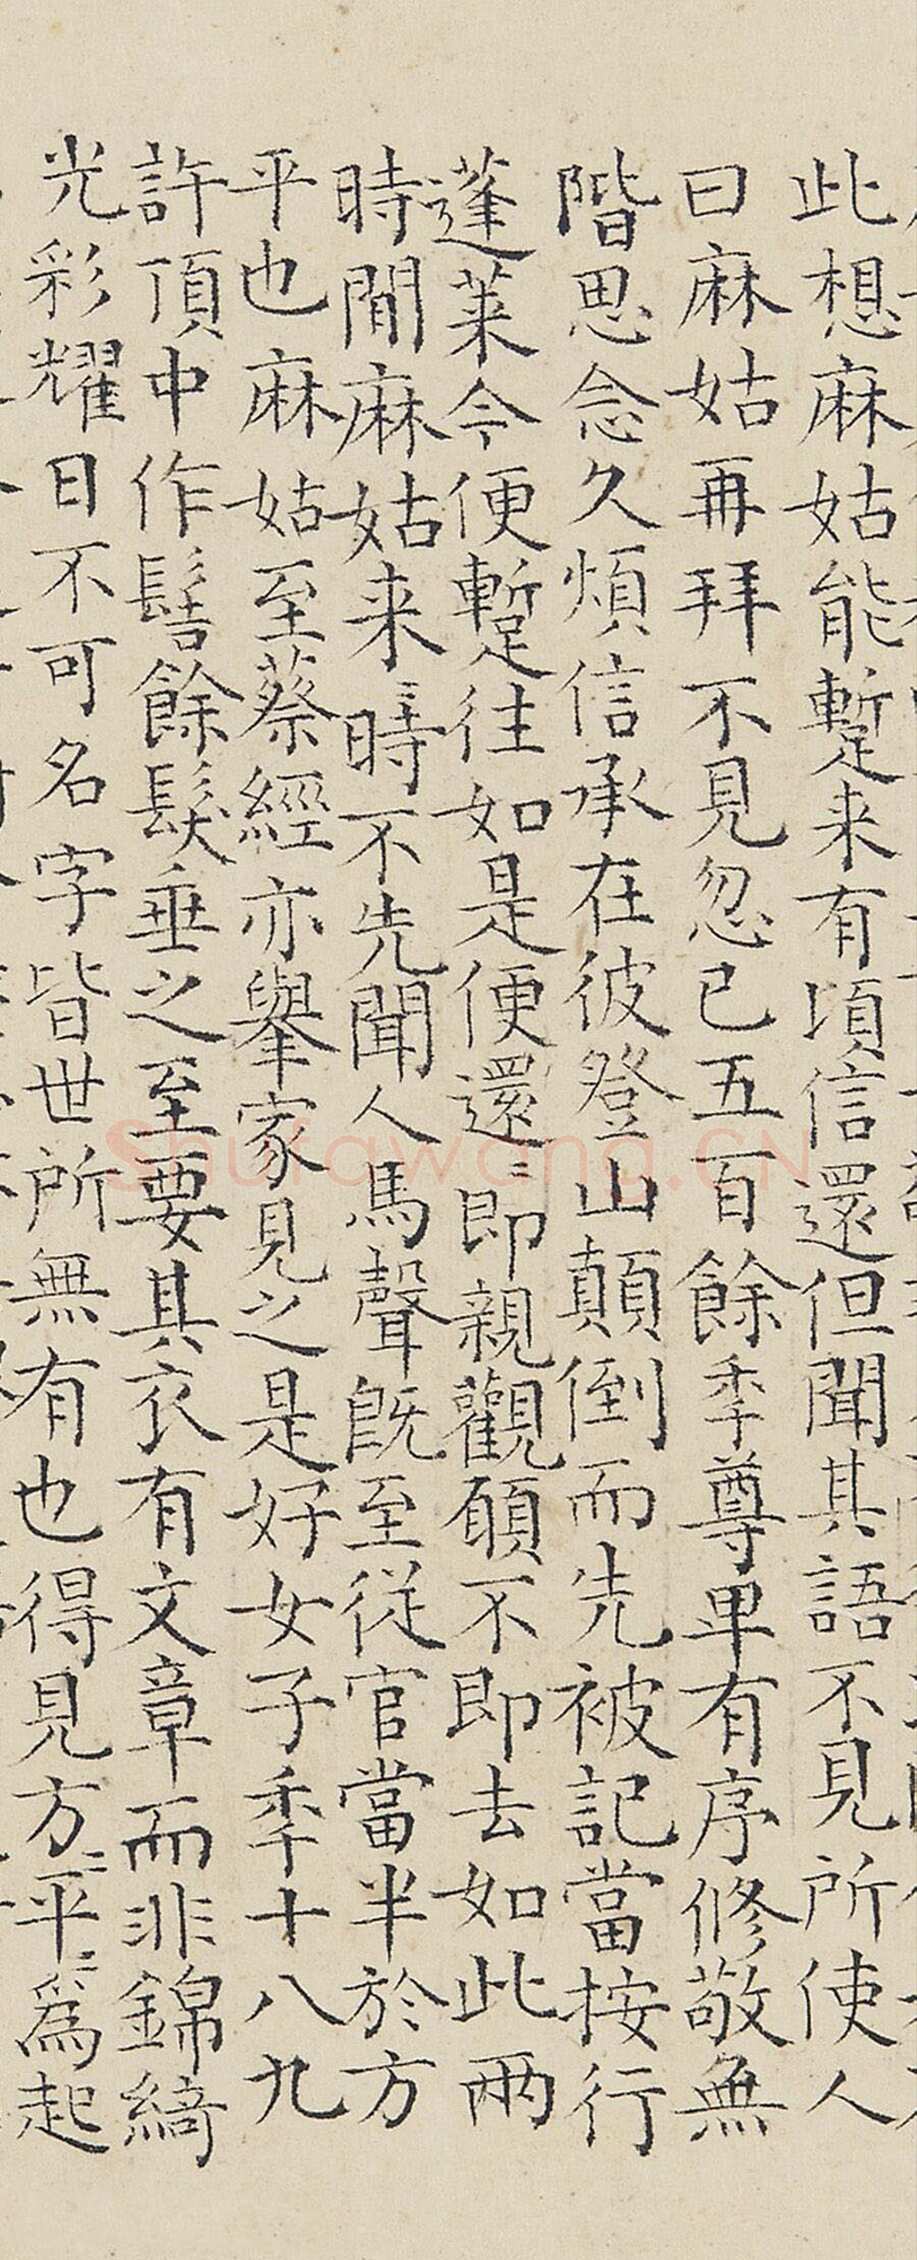 此想麻姑能蹔来有頃信還但聞其語不見所使人
曰麻姑再拜不見忽已五百餘秊尊卑有序修敬無
階思念久煩信承在彼登山顛倒而先被記當按行
蓬莱今便蹔往如是便還〻即親觀願不即去如此兩
時間麻姑来〻時不先聞人馬聲既至從官當半於方
平也麻姑至蔡經亦舉家見之是好女子秊十八九
許頂中作髻餘髮垂之至要其衣有文章而非錦綺
光彩耀日不可名字皆世所無有也得見方〻平〻為起
Shufawang.CN